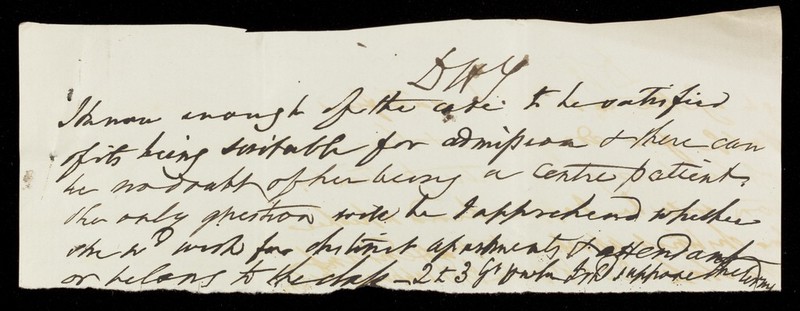 D H Y
I know enough of the case to be satisfied
of its being suitable for admission & there can
be no doubt of her being a Centre patient.
The only question will be I apprehend whether
she wd wish for distinct apartments & attendant
or belong to the class — 2 & 3 Gs I shd suppose the terms